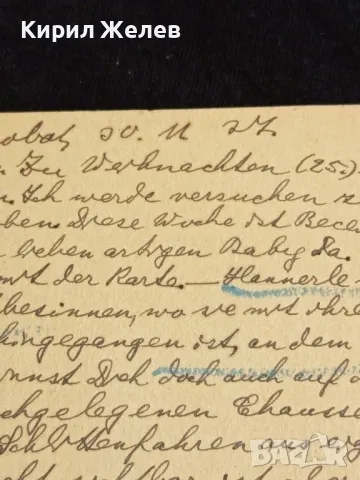 Кирил Желев
30. 11 27.
Zu Weihnachten (25.)
Ich werde versuchen z
ben. Diese Woche ist Bece
lieben artigen Baby da.
mit der Karte. — Hannerle
besinnen, wo sie mit ihre
hingegangen ist, an dem
nnst Dich doch auch auf d
chgelegenen Chausse
Schlittenfahren aus
BAZAR